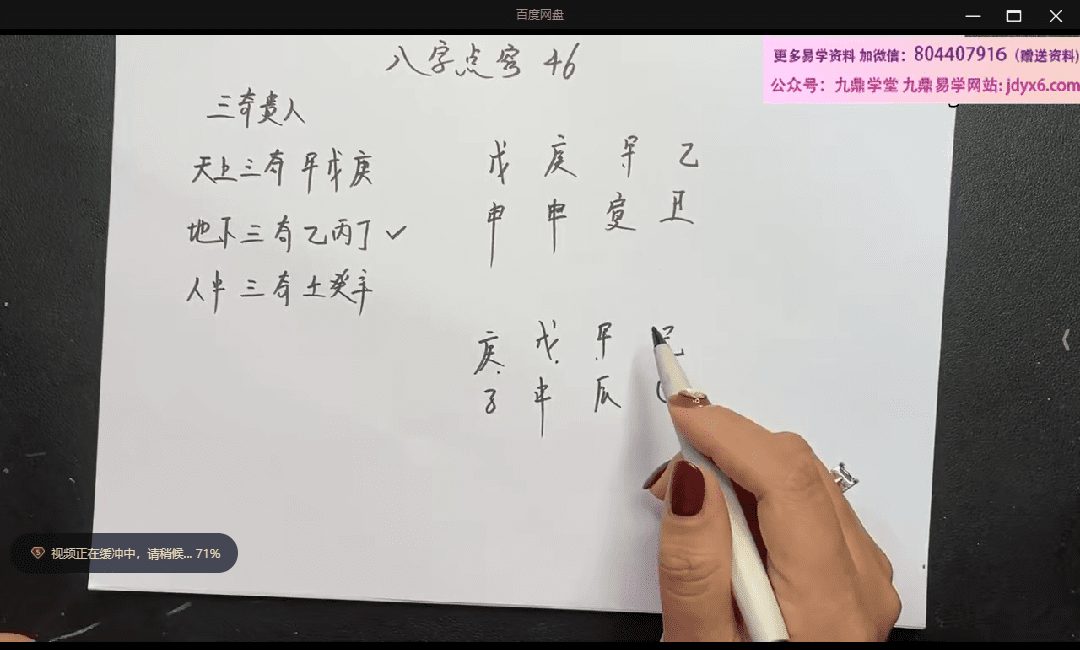 百度网盘
更多易学资料 加微信：804407916（赠送资料)
公众号：九鼎学堂 九鼎易学网站:jdyx6.com
八字点窍 46
三奇贵人
天上三奇 甲戊庚
地下三奇 乙丙丁 ✓
人中三奇 壬癸辛
戊 庚 甲 乙
申 申 寅 丑
庚 戊 甲
子 申
视频正在缓冲中，请稍候... 71%